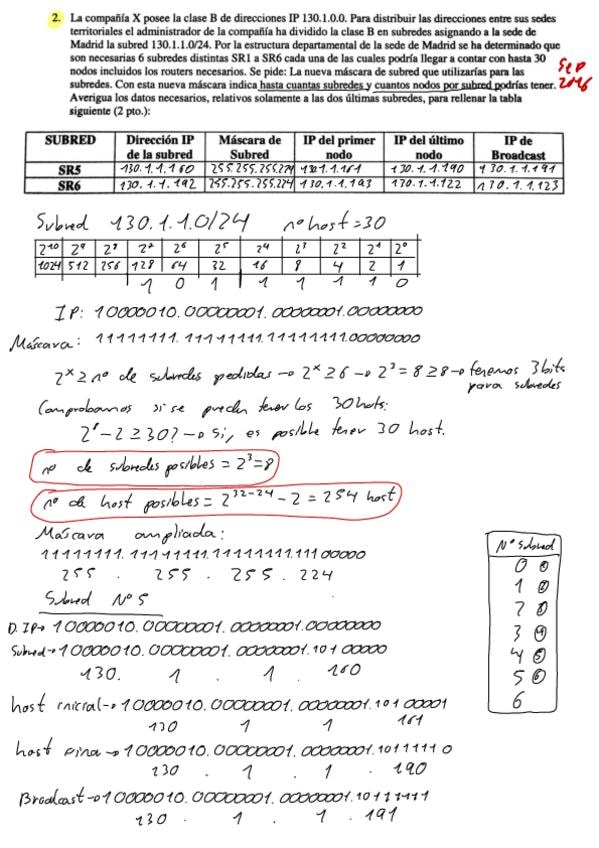 2. La compañía X posee la clase B de direcciones IP 130.1.0.0. Para distribuir las direcciones entre sus sedes
territoriales el administrador de la compañía ha dividido la clase B en subredes asignando a la sede de
Madrid la subred 130.1.1.0/24. Por la estructura departamental de la sede de Madrid se ha determinado que
son necesarias 6 subredes distintas SR1 a SR6 cada una de las cuales podría llegar a contar con hasta 30
nodos incluidos los routers necesarios. Se pide: La nueva máscara de subred que utilizarías para las
subredes. Con esta nueva máscara indica hasta cuantas subredes y cuantos nodos por subred podrías tener.
Averigua los datos necesarios, relativos solamente a las dos últimas subredes, para rellenar la tabla
siguiente (2 pto.):
Sep
2016
SUBRED Dirección IP de la subred Máscara de Subred IP del primer nodo IP del último nodo IP de Broadcast
SR5 130.1.1.160 255.255.255.224 130.1.1.161 130.1.1.190 130.1.1.191
SR6 130.1.1.192 255.255.255.224 130.1.1.193 130.1.1.122 130.1.1.123
Subred 130.1.1.0/24 nº host=30
2¹⁰ 2⁹ 2⁸ 2⁷ 2⁶ 2⁵ 2⁴ 2³ 2² 2¹ 2⁰
1024 512 256 128 64 32 16 8 4 2 1
1 0 1 1 1 1 1 0
IP: 10000010.00000001.00000001.00000000
Máscara: 11111111.11111111.11111111.00000000
2ˣ ≥ nº de subredes pedidas → 2ˣ ≥ 6 → 2³ = 8 ≥ 8 → tenemos 3 bits
para subredes
Comprobamos si se pueden tener los 30 hots:
2⁵ - 2 ≥ 30? → Si, es posible tener 30 host.
nº de subredes posibles = 2³ = 8
nº de host posibles = 2³²⁻²⁴ - 2 = 254 host
Máscara ampliada:
11111111.11111111.11111111.11100000
255 . 255 . 255 . 224
Subred Nº 5
D. IP→ 10000010.00000001.00000001.00000000
Subred→ 10000010.00000001.00000001.10100000
130. 1 . 1 . 160
host inicial→ 10000010.00000001.00000001.10100001
130 1 1 161
host fina → 10000010.00000001.00000001.10111110
130 . 1 . 1 . 190
Broadcast→ 10000010.00000001.00000001.10111111
130 . 1 . 1 . 191
Nº Subred
0 ①
1 ②
2 ③
3 ④
4 ⑤
5 ⑥
6